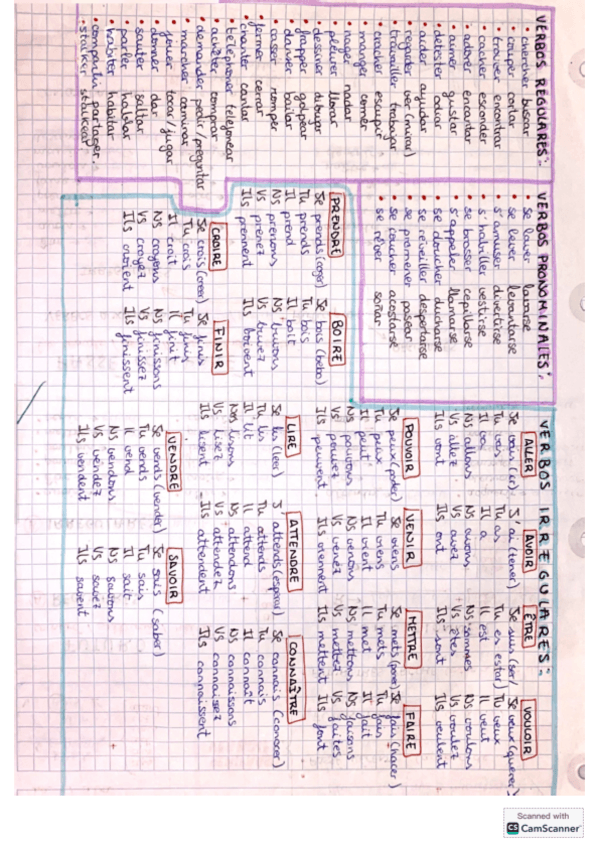 VERBOS REGULARES:
• chercher buscar
• couper cortar
• trouver encontrar
• cacher esconder
• adorer encantar
• aimer gustar
• détester odiar
• aider ayudar
• regarder ver (mirar)
• travailler trabajar
• cracher escupir
• manger comer
• nager nadar
• pleurer llorar
• dessiner dibujar
• frapper golpear
• danser bailar
• casser romper
• fermer cerrar
• chanter cantar
• téléphoner telefonear
• acheter comprar
• demander pedir/preguntar
• marcher caminar
• jouer tocar/jugar
• donner dar
• sauter saltar
• parler hablar
• habiter habitar
• compartir partager
• stalker stalkear
VERBOS PRONOMINALES:
• se laver lavarse
• se lever levantarse
• s'amuser divertirse
• s'habiller vestirse
• se brosser cepillarse
• s'appeler llamarse
• se doucher ducharse
• se réveiller despertarse
• se promener pasear
• se coucher acostarse
• se rêver soñar
VERBOS IRREGULARES:
ALLER
Je vais (ir)
Tu vas
Il va
Ns allons
Vs allez
Ils vont
AVOIR
J'ai (tener)
Tu as
Il a
Ns avons
Vs avez
Ils ont
ÊTRE
Je suis (ser/
Tu es estar)
Il est
Ns sommes
Vs êtes
Ils sont
VOULOIR
Je veux (querer)
Tu veux
Il veut
Ns voulons
Vs voulez
Ils veulent
POUVOIR
Je peux (poder)
Tu peux
Il peut
Ns pouvons
Vs pouvez
Ils peuvent
VENIR
Je viens
Tu viens
Il vient
Ns venons
Vs venez
Ils viennent
METTRE
Je mets (poner)
Tu mets
Il met
Ns mettons
Vs mettez
Ils mettent
FAIRE
Je fais (hacer)
Tu fais
Il fait
Ns faisons
Vs faites
Ils font
PRENDRE
Je prends (coger)
Tu prends
Il prend
Ns prenons
Vs prenez
Ils prennent
BOIRE
Je bois (beber)
Tu bois
Il boit
Ns buvons
Vs buvez
Ils boivent
LIRE
Je lis (leer)
Tu lis
Il lit
Nous lisons
Vs lisez
Ils lisent
ATTENDRE
J'attends (esperar)
Tu attends
Il attend
Ns attendons
Vs attendez
Ils attendent
CONNAÎTRE
Je connais (conocer)
Tu connais
Il connaît
Ns connaissons
Vs connaissez
Ils connaissent
CROIRE
Je crois (creer)
Tu crois
Il croit
Ns croyons
Vs croyez
Ils croient
FINIR
Je finis
Tu finis
Il finit
Ns finissons
Vs finissez
Ils finissent
VENDRE
Je vends (vender)
Tu vends
Il vend
Ns vendons
Vs vendez
Ils vendent
SAVOIR
Je sais (saber)
Tu sais
Il sait
Ns savons
Vs savez
Ils savent
Scanned with
CS CamScanner